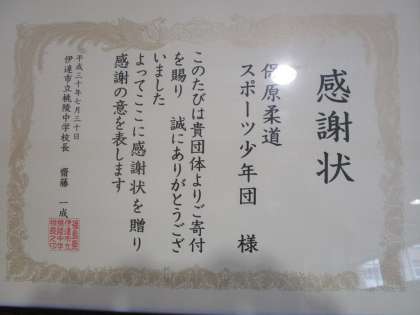 感謝状
保原柔道
スポーツ少年団 様
このたびは貴団体よりご寄付
を賜り 誠にありがとうござ
いました
よってここに感謝状を贈り
感謝の意を表します
平成三十年七月三十日
伊達市立桃陵中学校長 齋藤 一成